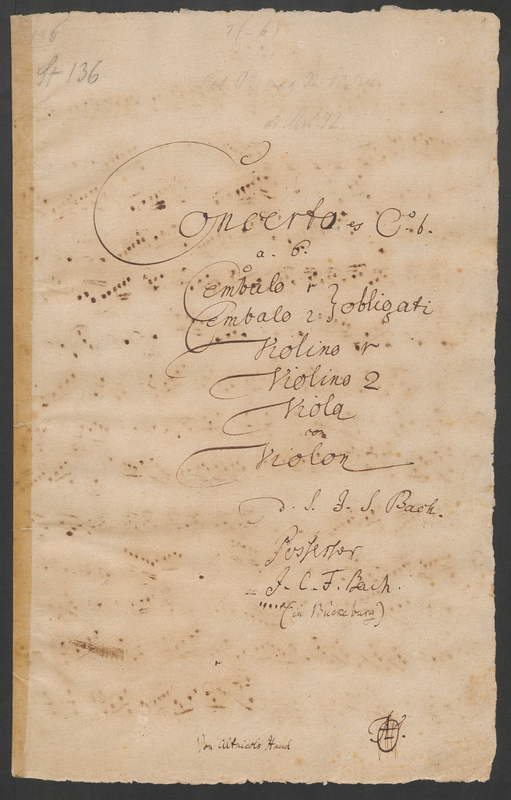 St 136
Concerto
a. 6.
Cembalo 1
Cembalo 2 } obligati
Violino 1
Violino 2
Viola
con
Violon
d. S. J. S. Bach.
Possessor
J. C. F. Bach.
(in Bückeburg)
Von Altnicols Hand